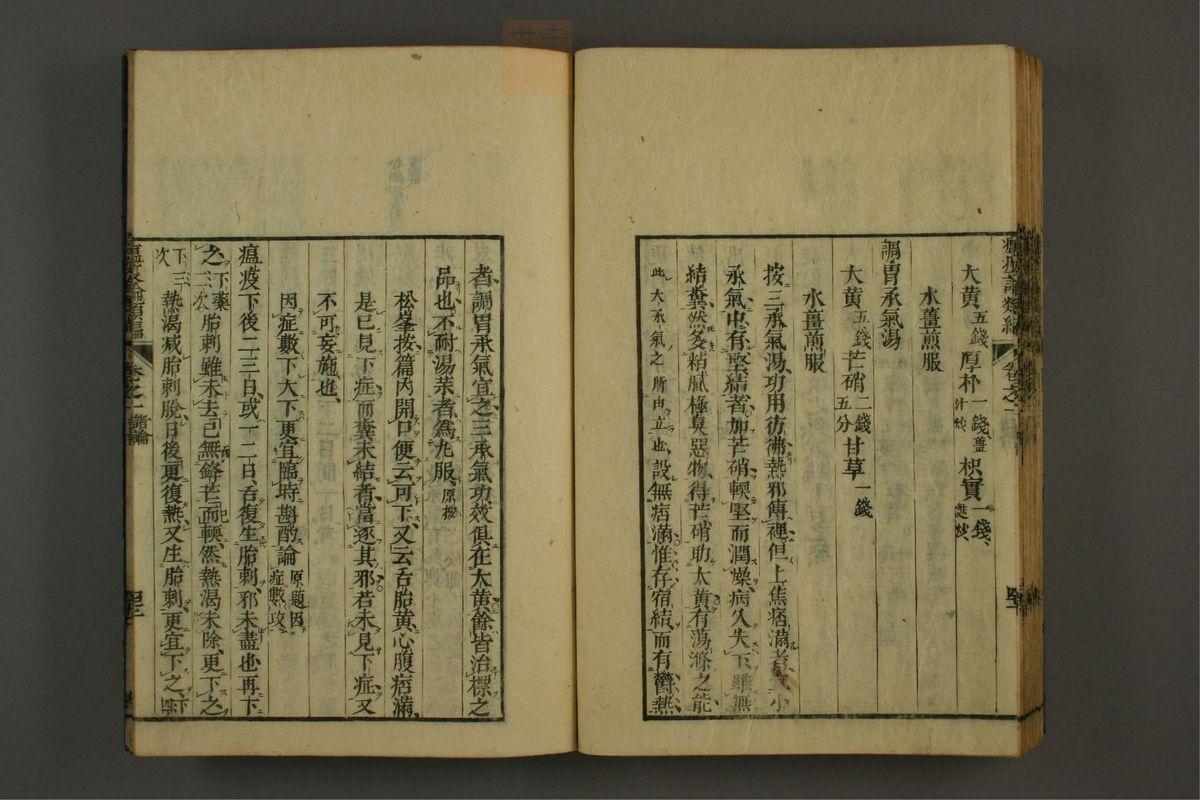 大黄五錢厚朴一錢薑汁炒枳實一錢麩炒
水薑煎服
調胃承氣湯
大黄五錢芒硝二錢五分甘草一錢
水薑煎服
按三承氣湯功用彷彿熱邪傳裡但上焦痞滿者宜小
承氣中有堅結者加芒硝輭堅而潤燥病久失下雖無
結糞然多粘膩極臭惡物得芒硝助大黄有蕩滌之能
設無痞滿惟存宿結而有鬱熱此大承氣之所由立也
者調胃承氣宜之三承氣功效俱在大黄餘皆治標之
品也不耐湯藥者為丸服原按
松峯按篇内開口便云可下又云舌胎黄心腹痞滿
是已見下症而糞未結者當逐其邪若未見下症又
不可妄施也
因症數下大下更宜臨時斟酌論原題因症數攻
瘟疫下後二三日或一二日舌復生胎刺邪未盡也再下
之下藥二次胎刺雖未去已無鋒芒而輭然熱渴未除更下之
下三次熱渴减胎刺脫日後更復熱又生胎刺更宜下之下四
瘟疫論類編
卷之一
諸論